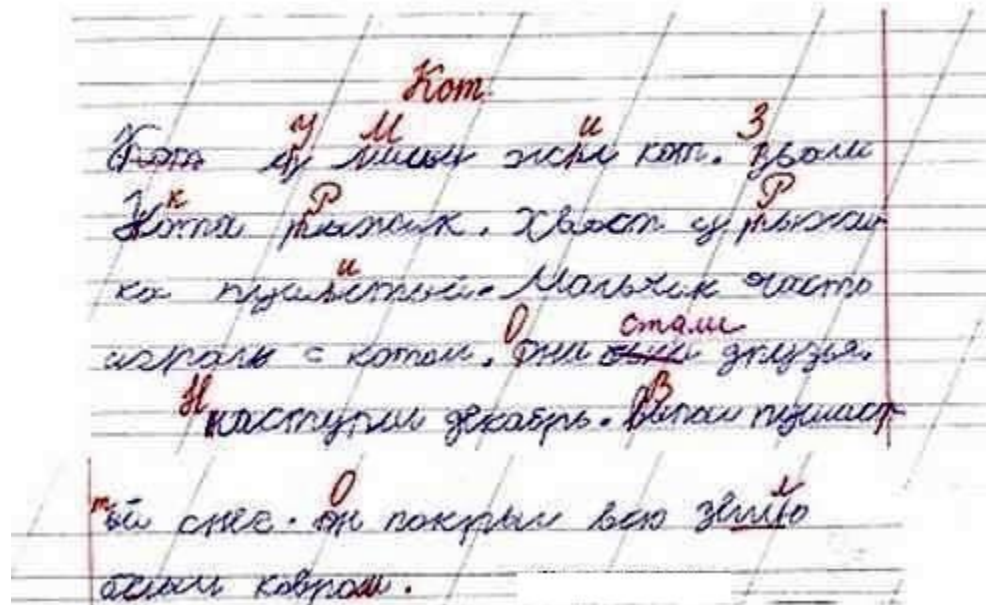 Кот
у Миши жил кот. Звали
Кота Рыжик. Хвост у Рыжи
ка пушистый. Мальчик часто
играль с котом. Они стали друзья.
Наступил декабрь. Выпал пушист
тый снег. Он покрыл всю землю
белым ковром.